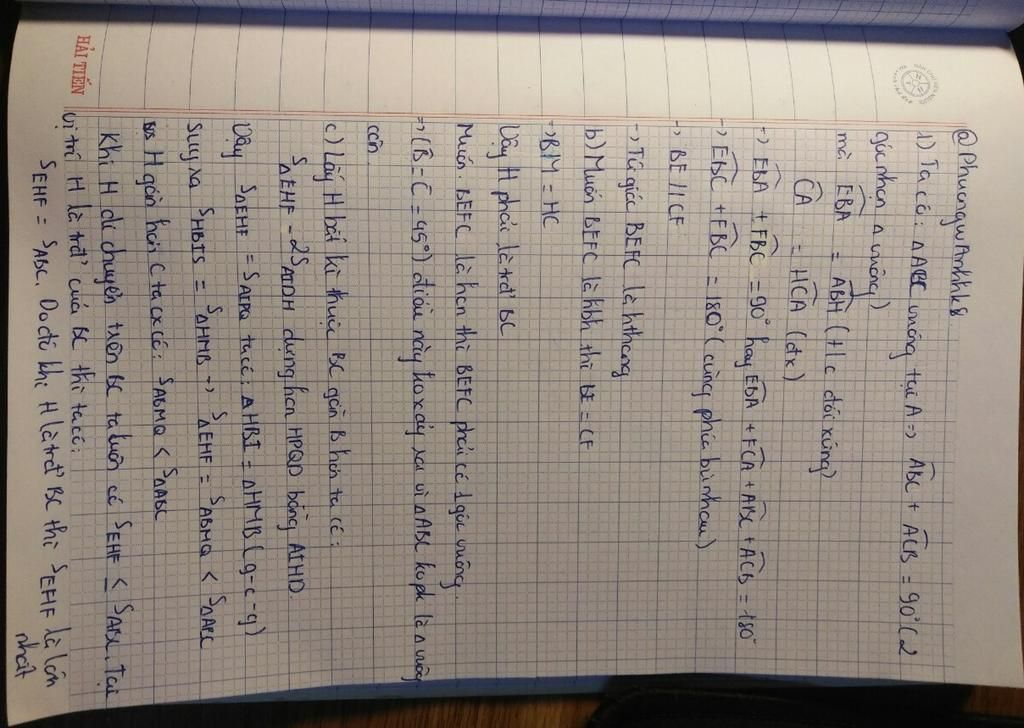 @PhungwAnhhk8
1) Ta có: △ABC vuông tại A => ABC + ACB = 90° (2
góc nhọn △ vuông)
mà EBA = ABH (t/c đối xứng)
CA = HCA (đx)
→ EBA + FBC = 90° hay EBA + FCA + ABC + ACB = 180°
→ EBC + FBC = 180° (cùng phía bù nhau)
→ BE // CF
→ Tứ giác BEFC là hthang
b) Muốn BEFC là hbh thì BE = CF
→ BM = HC
Vậy H phải là trđ BC
Muốn BEFC là hcn thì BEFC phải có 1 góc vuông.
→ (B = C = 45°) điều này ko xảy ra vì △ABC ko pk là △ vuông
cân
c) Lấy H bất kì thuộc BC gần B hơn ta có:
S△EHF = 2S△IDH dựng hcn HPQD bằng AIHD.
Vậy S△EHF = SAIPQ ta có: △HBI = △HMB (g-c-g)
Suy ra SHBIS = S△HMB → S△EHF = SABMQ < S△ABC
H gần hơn C ta cx có: SABMQ < S△ABC
Khi H di chuyển trên BC ta luôn có SEHF ≤ SABC. Tại
vị trí H là trđ của BC thì ta có:
SEHF = SABC. Do đó khi H là trđ BC thì SEHF là lớn
nhất
HẢI TIẾN